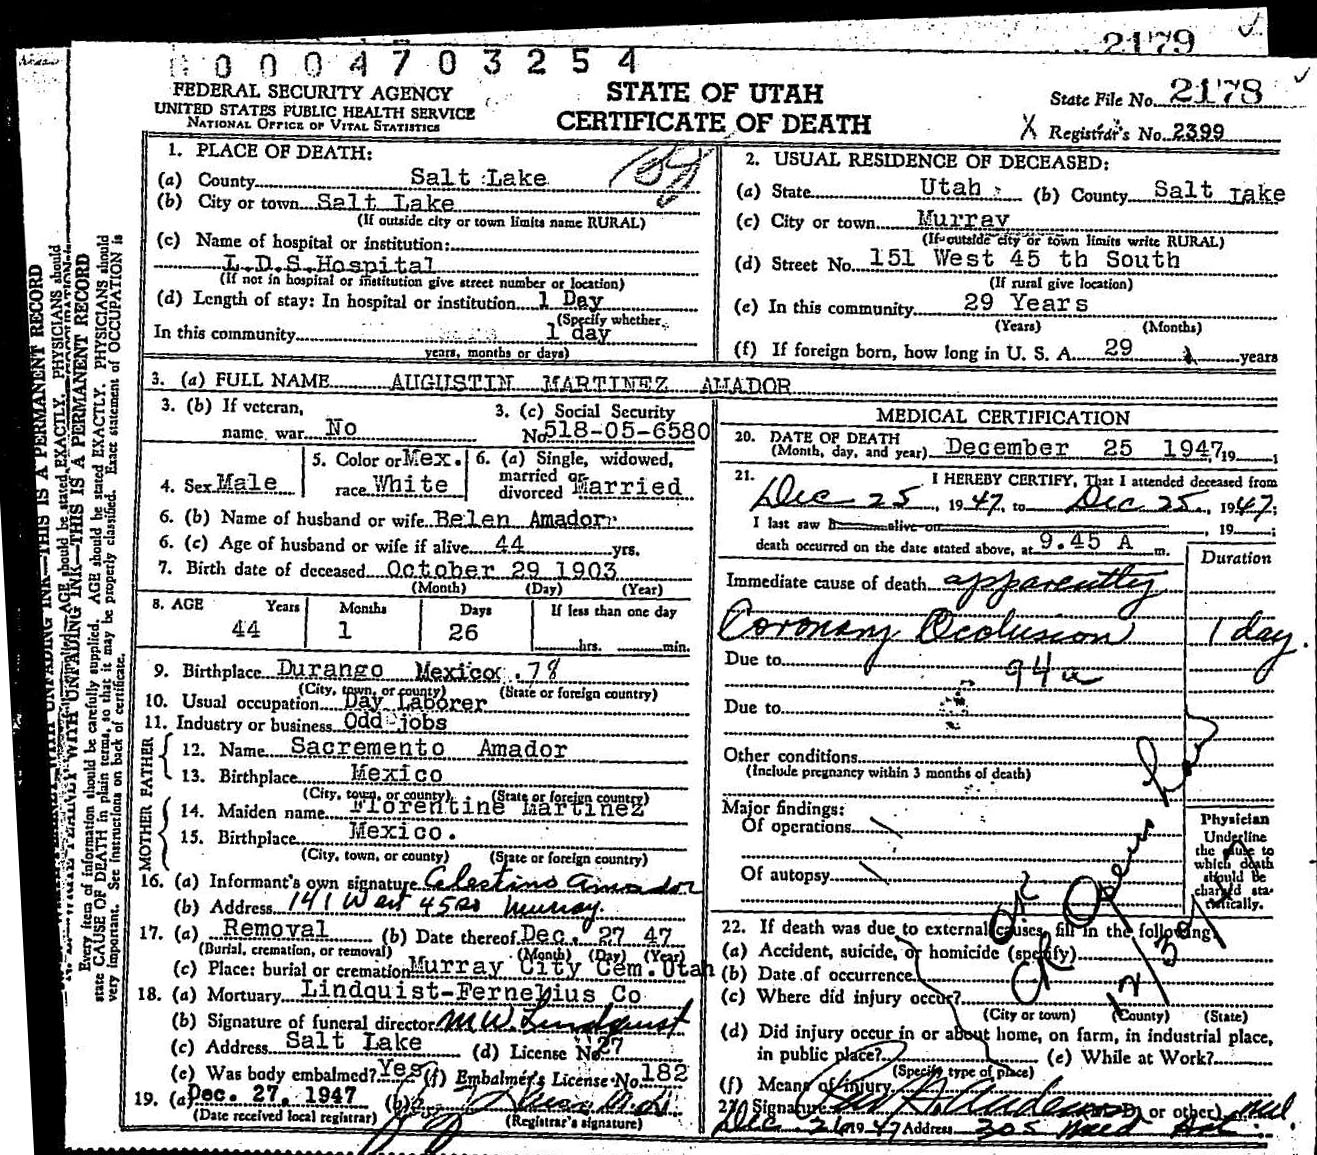 2179
0004703254
FEDERAL SECURITY AGENCY
UNITED STATES PUBLIC HEALTH SERVICE
NATIONAL OFFICE OF VITAL STATISTICS
STATE OF UTAH
CERTIFICATE OF DEATH
State File No. 2178
X Registrar's No. 2399
1. PLACE OF DEATH:
(a) County Salt Lake
(b) City or town Salt Lake
(If outside city or town limits name RURAL)
(c) Name of hospital or institution:
L.D.S. Hospital
(If not in hospital or institution give street number or location)
(d) Length of stay: In hospital or institution 1 Day
(Specify whether
In this community 1 day
years, months or days)
2. USUAL RESIDENCE OF DECEASED:
(a) State Utah (b) County Salt Lake
(c) City or town Murray
(If outside city or town limits write RURAL)
(d) Street No. 151 West 45 th South
(If rural give location)
(e) In this community 29 Years
(Years) (Months)
(f) If foreign born, how long in U. S. A. 29 years
3. (a) FULL NAME AUGUSTIN MARTINEZ AMADOR
3. (b) If veteran,
name war No
3. (c) Social Security
No 518-05-6580
4. Sex Male
5. Color or Mex.
race White
6. (a) Single, widowed,
married or
divorced Married
6. (b) Name of husband or wife Belen Amador
6. (c) Age of husband or wife if alive 44 yrs.
7. Birth date of deceased October 29 1903
(Month) (Day) (Year)
8. AGE Years Months Days If less than one day
44 1 26 hrs. min.
9. Birthplace Durango Mexico .78
(City, town, or county) (State or foreign country)
10. Usual occupation Day Laborer
11. Industry or business Odd jobs
FATHER
12. Name Sacremento Amador
13. Birthplace Mexico
(City, town, or county) (State or foreign country)
MOTHER
14. Maiden name Florentine Martinez
15. Birthplace Mexico.
(City, town, or county) (State or foreign country)
16. (a) Informant's own signature Celestino Amador
(b) Address 141 West 45 So Murray
17. (a) Removal (b) Date thereof Dec. 27 47
(Burial, cremation, or removal) (Month) (Day) (Year)
(c) Place: burial or cremation Murray City Cem. Utah
18. (a) Mortuary Lindquist-Fernelius Co
(b) Signature of funeral director M W. Lindquist
(c) Address Salt Lake (d) License No 27
(e) Was body embalmed? Yes (f) Embalmer's License No. 182
19. (a) Dec. 27, 1947 (b)
(Date received local registrar) (Registrar's signature)
MEDICAL CERTIFICATION
20. DATE OF DEATH
(Month, day, and year) December 25 1947, 19
21. I HEREBY CERTIFY, That I attended deceased from
Dec 25, 1947, to Dec 25, 1947;
I last saw h alive on , 19 ;
death occurred on the date stated above, at 9.45 A m.
Duration
Immediate cause of death apparently
Coronary Occlusion 1 day.
Due to 94a
Due to
Other conditions
(Include pregnancy within 3 months of death)
Major findings:
Of operations
Of autopsy
Physician
Underline
the cause to
which death
should be
charged sta-
tistically.
22. If death was due to external causes, fill in the following:
(a) Accident, suicide, or homicide (specify)
(b) Date of occurrence
(c) Where did injury occur?
(City or town) (County) (State)
(d) Did injury occur in or about home, on farm, in industrial place,
in public place? (e) While at Work?
(Specify type of place)
(f) Means of injury
23. Signature (M. D. or other) Md.
Dec 26 1947 Address 305
WRITE PLAINLY WITH UNFADING INK—THIS IS A PERMANENT RECORD
Every item of information should be carefully supplied. AGE should be stated EXACTLY. PHYSICIANS should
state CAUSE OF DEATH in plain terms, so that it may be properly classified. Exact statement of OCCUPATION is
very important. See instructions on back of certificate.